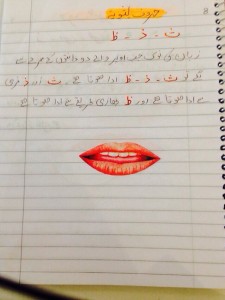 8
حروف لثویہ
ث - ذ - ظ
زبان کی نوک جب اوپر والے دو دانتوں کے سرے سے
لگے تو ث - ذ - ظ ادا ہوتا ہے - ث اور ذ نرمی
سے ادا ہوتا ہے اور ظ بھاری طریقے سے ادا ہوتا ہے